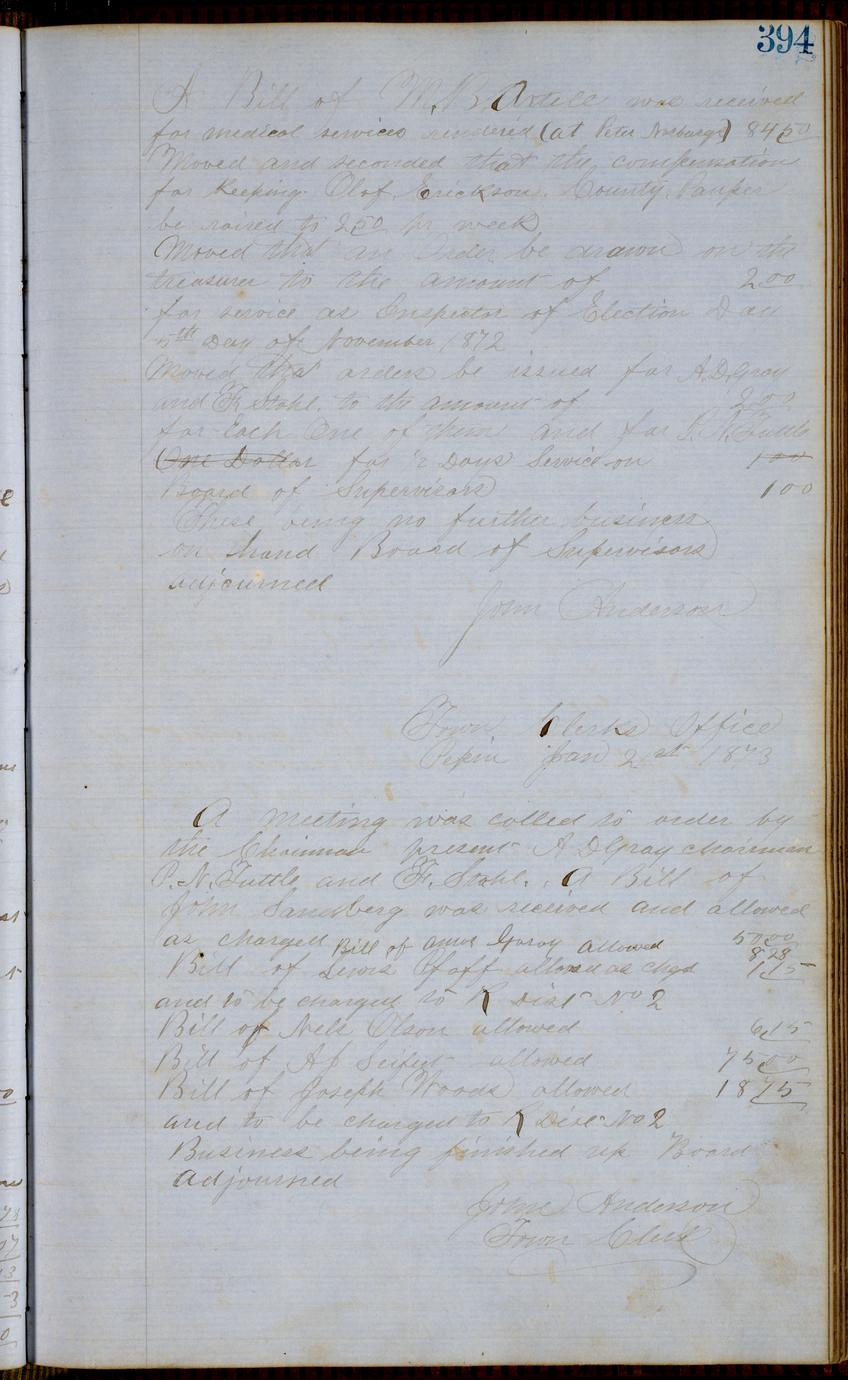 394
A Bill of M. B. Axtell was received
for medical services rendered (at Peter Norburgs) 84 50
Moved and seconded that the compensation
for keeping Olof Erickson County Pauper
be raised to 2 50 pr week
Moved that an Order be drawn on the
treasurer to the amount of 2 00
for service as Inspector of Election
5th Day of November 1872
Moved that orders be issued for A. D. Gray
and F. Stahl to the amount of 2 00
for Each One of them and for P. N. Tuttle
One Dollar for 1/2 Days Service on 1 00
Board of Supervisors 1 00
There being no further business
on hand Board of Supervisors
adjourned
John Anderson
Town Clerks Office
Pepin Jan 21st 1873
A meeting was called to order by
the Chairman present A D Gray chairman
P. N. Tuttle and F. Stahl. A Bill of
John Sandberg was received and allowed
as charged 50 00
Bill of Gray allowed 8 28
Bill of Lewis Pfaff allowed as chgd 1 15
and to be charged to R Dist No 2
Bill of Nels Olson allowed 6 15
Bill of A J Seifert allowed 75 00
Bill of Joseph Woods allowed 18 75
and to be charged to R Dist No 2
Business being finished up Board
adjourned
John Anderson
Town Clerk